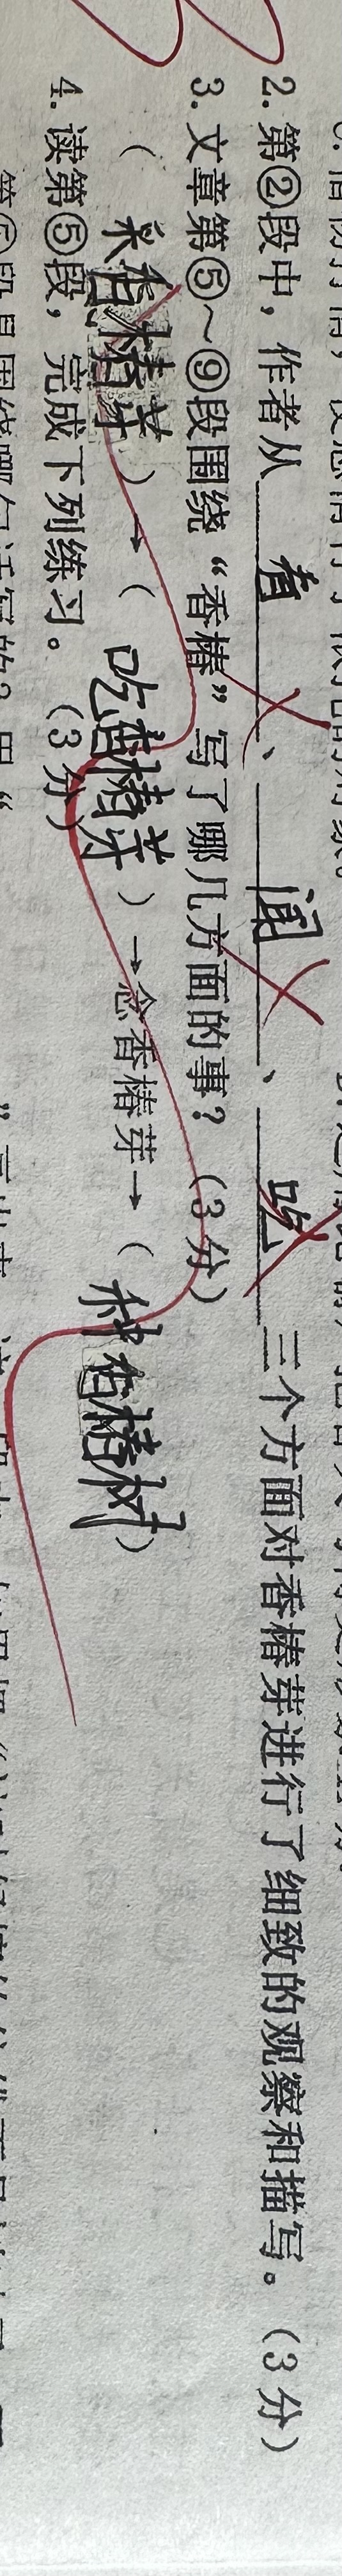 2. 第②段中，作者从 看 、 闻 、 吃 三个方面对香椿芽进行了细致的观察和描写。（3分）
3. 文章第⑤～⑨段围绕“香椿”写了哪几方面的事？（3分）
（采香椿芽）→（吃香椿芽）→念香椿芽→（种香椿树）
4. 读第⑤段，完成下列练习。（3分）